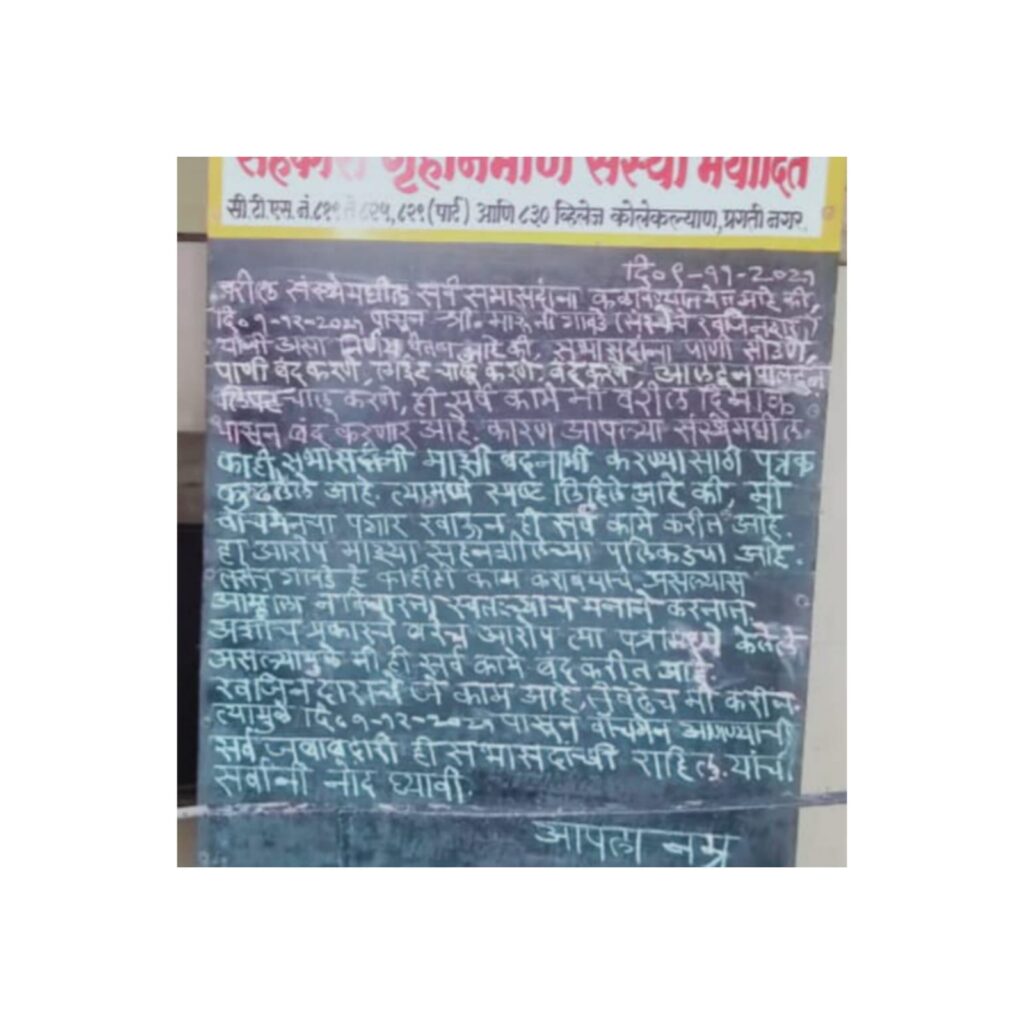 सहकारी गृहनिर्माण संस्था मर्यादित
सी.टी.एस.नं.८२९ ते ८२५,८२९(पार्ट) आणि ८३० व्हिलेज कोलेकल्याण,प्रगती नगर.
दि०९-११-२०२१
वरील संस्थेमधील सर्व सभासदांना कळविण्यात येत आहे की,
दि०१-१२-२०२१ पासून श्री. मारूती गावडे (संस्थेचे खजिनदार)
यांनी असा निर्णय घेतला आहे की, सभासदांना पाणी सोडणे,
पाणी बंद करणे, लाईट चालू करणे बंद करणे, आलटून पालटून
लिफ्ट चालू करणे, ही सर्व कामे मी वरील दिनांक
पासून बंद करणार आहे. कारण आपल्या संस्थेमधील
काही सभासदांनी माझी बदनामी करण्यासाठी पत्रक
काढलेले आहे. त्यामध्ये स्पष्ट लिहिले आहे की, मी
वॉचमेनचा पगार खाऊन ही सर्व कामे करीत आहे.
हा आरोप माझ्या सहनशीलतेच्या पलिकडचा आहे.
तसेच गावडे हे काहीही काम करावयाचे असल्यास
आम्हांला न विचारता स्वतःच्याच मनाने करतात.
अशाच प्रकारचे बरेच आरोप त्या पत्रामध्ये केलेले
असल्यामुळे मी ही सर्व कामे बंद करीत आहे.
खजिनदाराचे जे काम आहे, तेवढेच मी करीन.
त्यामुळे दि.०१-१२-२०२१ पासून वॉचमेन आणण्याची
सर्व जबाबदारी ही सभासदांची राहिल. यांची
सर्वांनी नोंद घ्यावी.
आपला नम्र